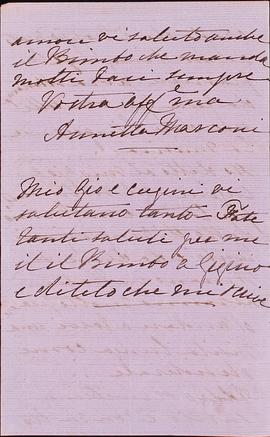 amore vi saluto anche
il Bimbo che manda
molti baci sempre
Vostra affma
Annetta Marconi
Mio zio e cugini vi
salutano tanto Fate
tanti saluti per me
il Bimbo a Gigino
e ditelo che mi scrive